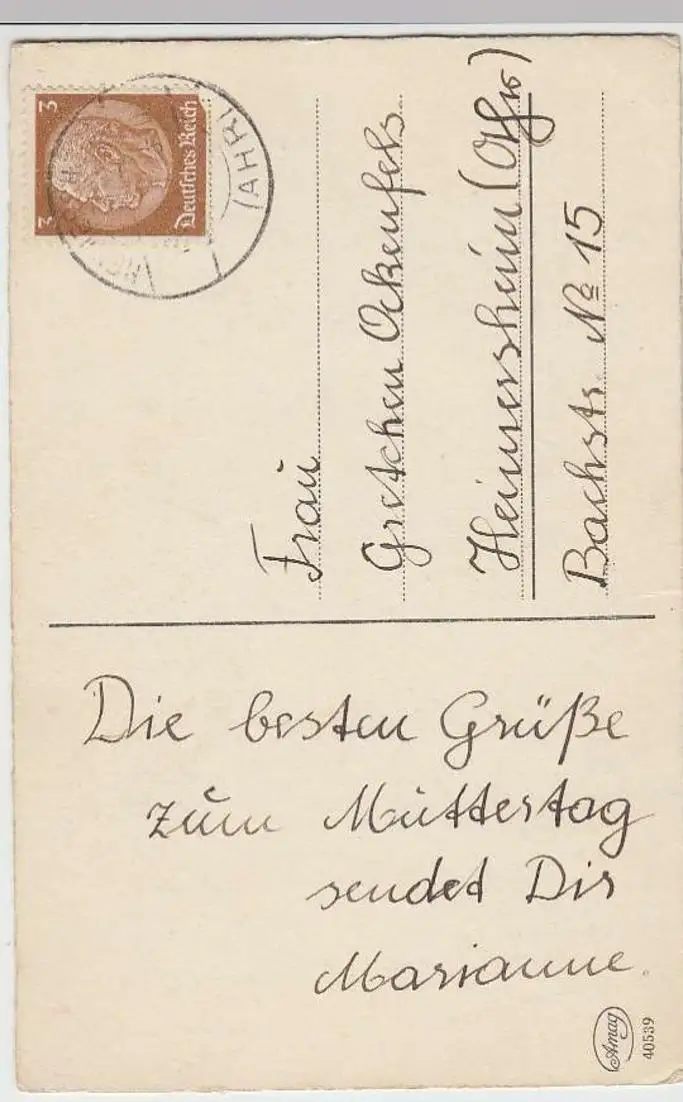 3 3
Deutsches Reich
(AHR)
Frau
Gretchen Ockenfels
Heimersheim (Ahr)
Bachstr. No 15
Die besten Grüße
zum Muttertag
sendet Dir
Marianne.
Amag
40539